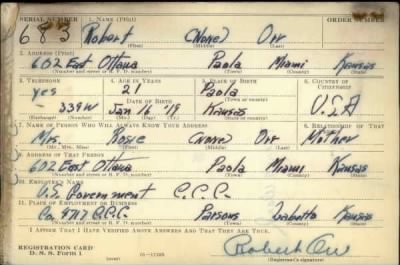 SERIAL NUMBER 1. NAME (Print) ORDER NUMBER
683 Robert (None) Orr
(First) (Middle) (Last)
2. ADDRESS (Print)
602 East Ottawa Paola Miami Kansas
(Number and street or R. F. D. number) (Town) (County) (State)
3. TELEPHONE 4. AGE IN YEARS 5. PLACE OF BIRTH 6. COUNTRY OF CITIZENSHIP
yes 21 Paola
DATE OF BIRTH (Town or county)
339W Jan 4 19 Kansas U.S.A
(Exchange) (Number) (Mo.) (Day) (Yr.) (State or country)
7. NAME OF PERSON WHO WILL ALWAYS KNOW YOUR ADDRESS 8. RELATIONSHIP OF THAT
Mrs (None) Orr Mother
(Mr., Mrs., Miss) (First) (Middle) (Last)
9. ADDRESS OF THAT PERSON
602 East Ottawa Paola Miami Kansas
(Number and street or R. F. D. number) (Town) (County) (State)
10. EMPLOYER'S NAME
U.S. Government C.C.C.
11. PLACE OF EMPLOYMENT OR BUSINESS
Co 4717 C.C.C. Parsons Labette Kansas
(Number and street or R. F. D. number) (Town) (County) (State)
I AFFIRM THAT I HAVE VERIFIED ABOVE ANSWERS AND THAT THEY ARE TRUE.
REGISTRATION CARD
D. S. S. Form 1
Robert Orr
(Registrant's signature)